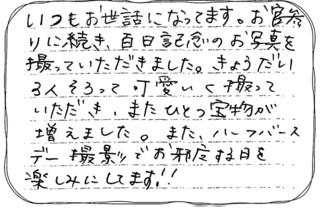 いつもお世話になってます。お宮参
りに続き、百日記念のお写真を
撮っていただきました。きょうだい
3人そろって可愛いく撮って
いただき、またひとつ宝物が
増えました。また、ハーフバース
デー撮影でお邪魔する日を
楽しみにしてます!!